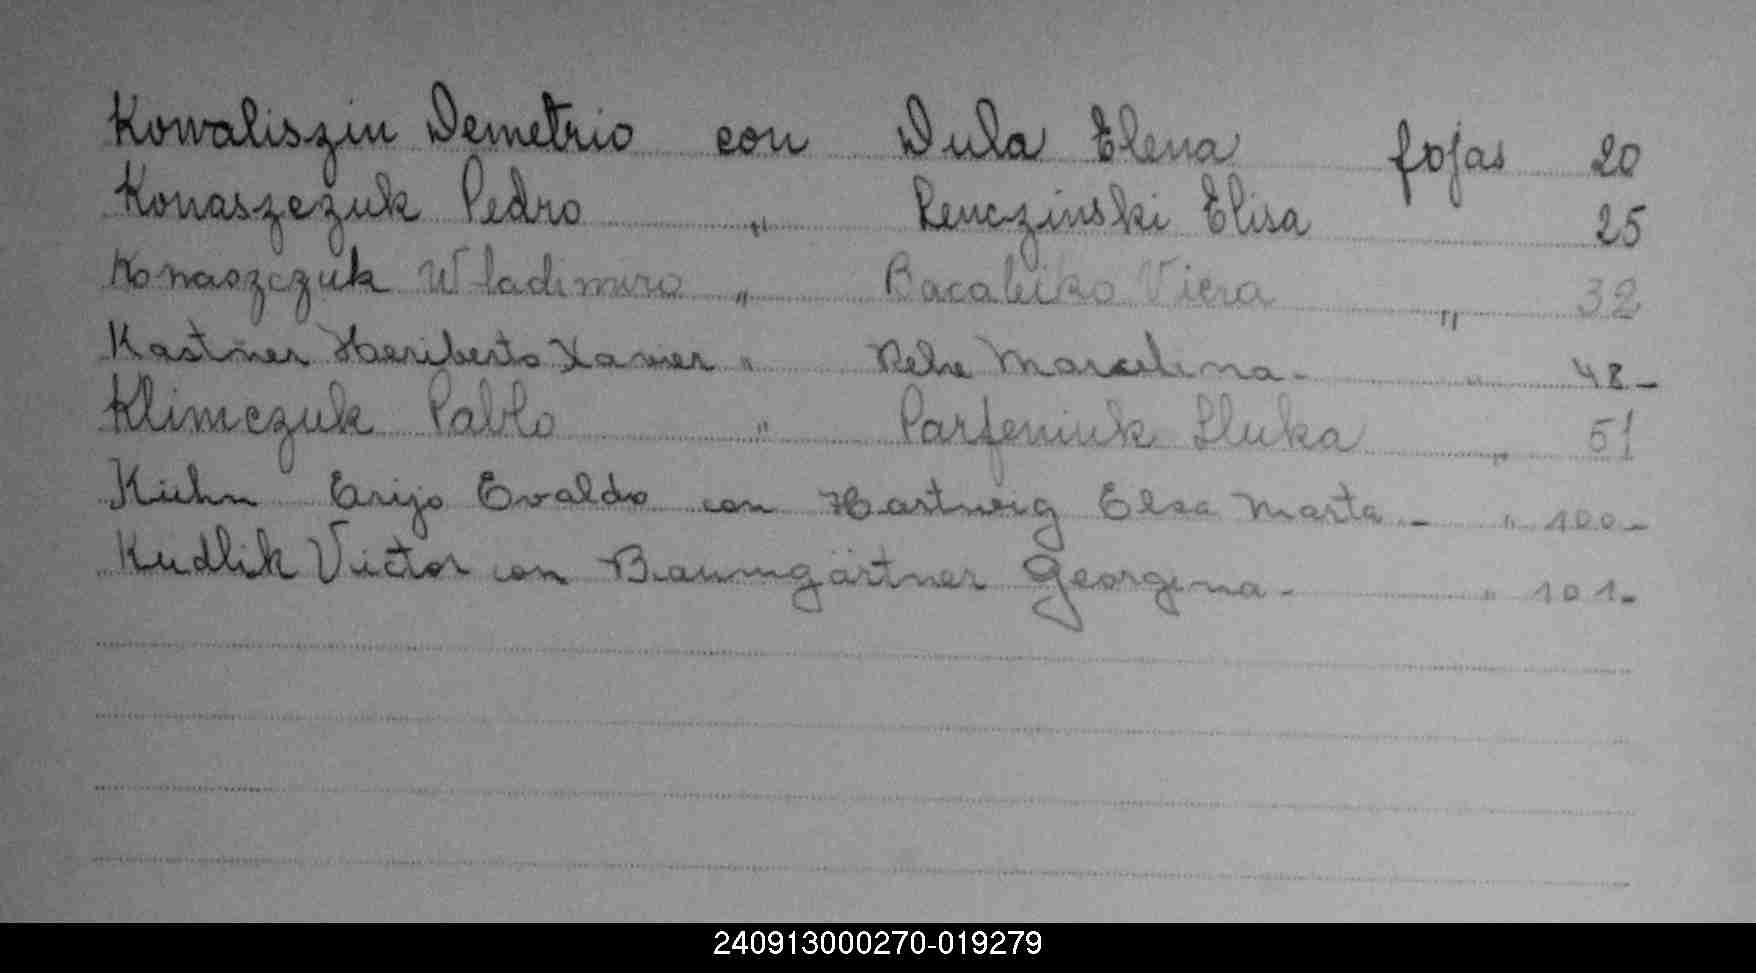 Kowaliszin Demetrio con Dula Elena fojas 20
Konaszczuk Pedro " Renczinski Elisa 25
Konaszczuk Wladimiro " Viera " 32
Kastner Heriberto Xavier " Rehe Marcelina - " 48-
Klimczuk Pablo " Parfeniuk Lluka " 51
Kuhn Erijo Evaldo con Hartwig Elsa Marta - " 100-
Kudlik Victor con Baumgärtner Georgina - " 101-
240913000270-019279